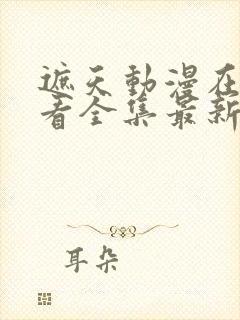 遮天動漫在
看全集最新
耳朵